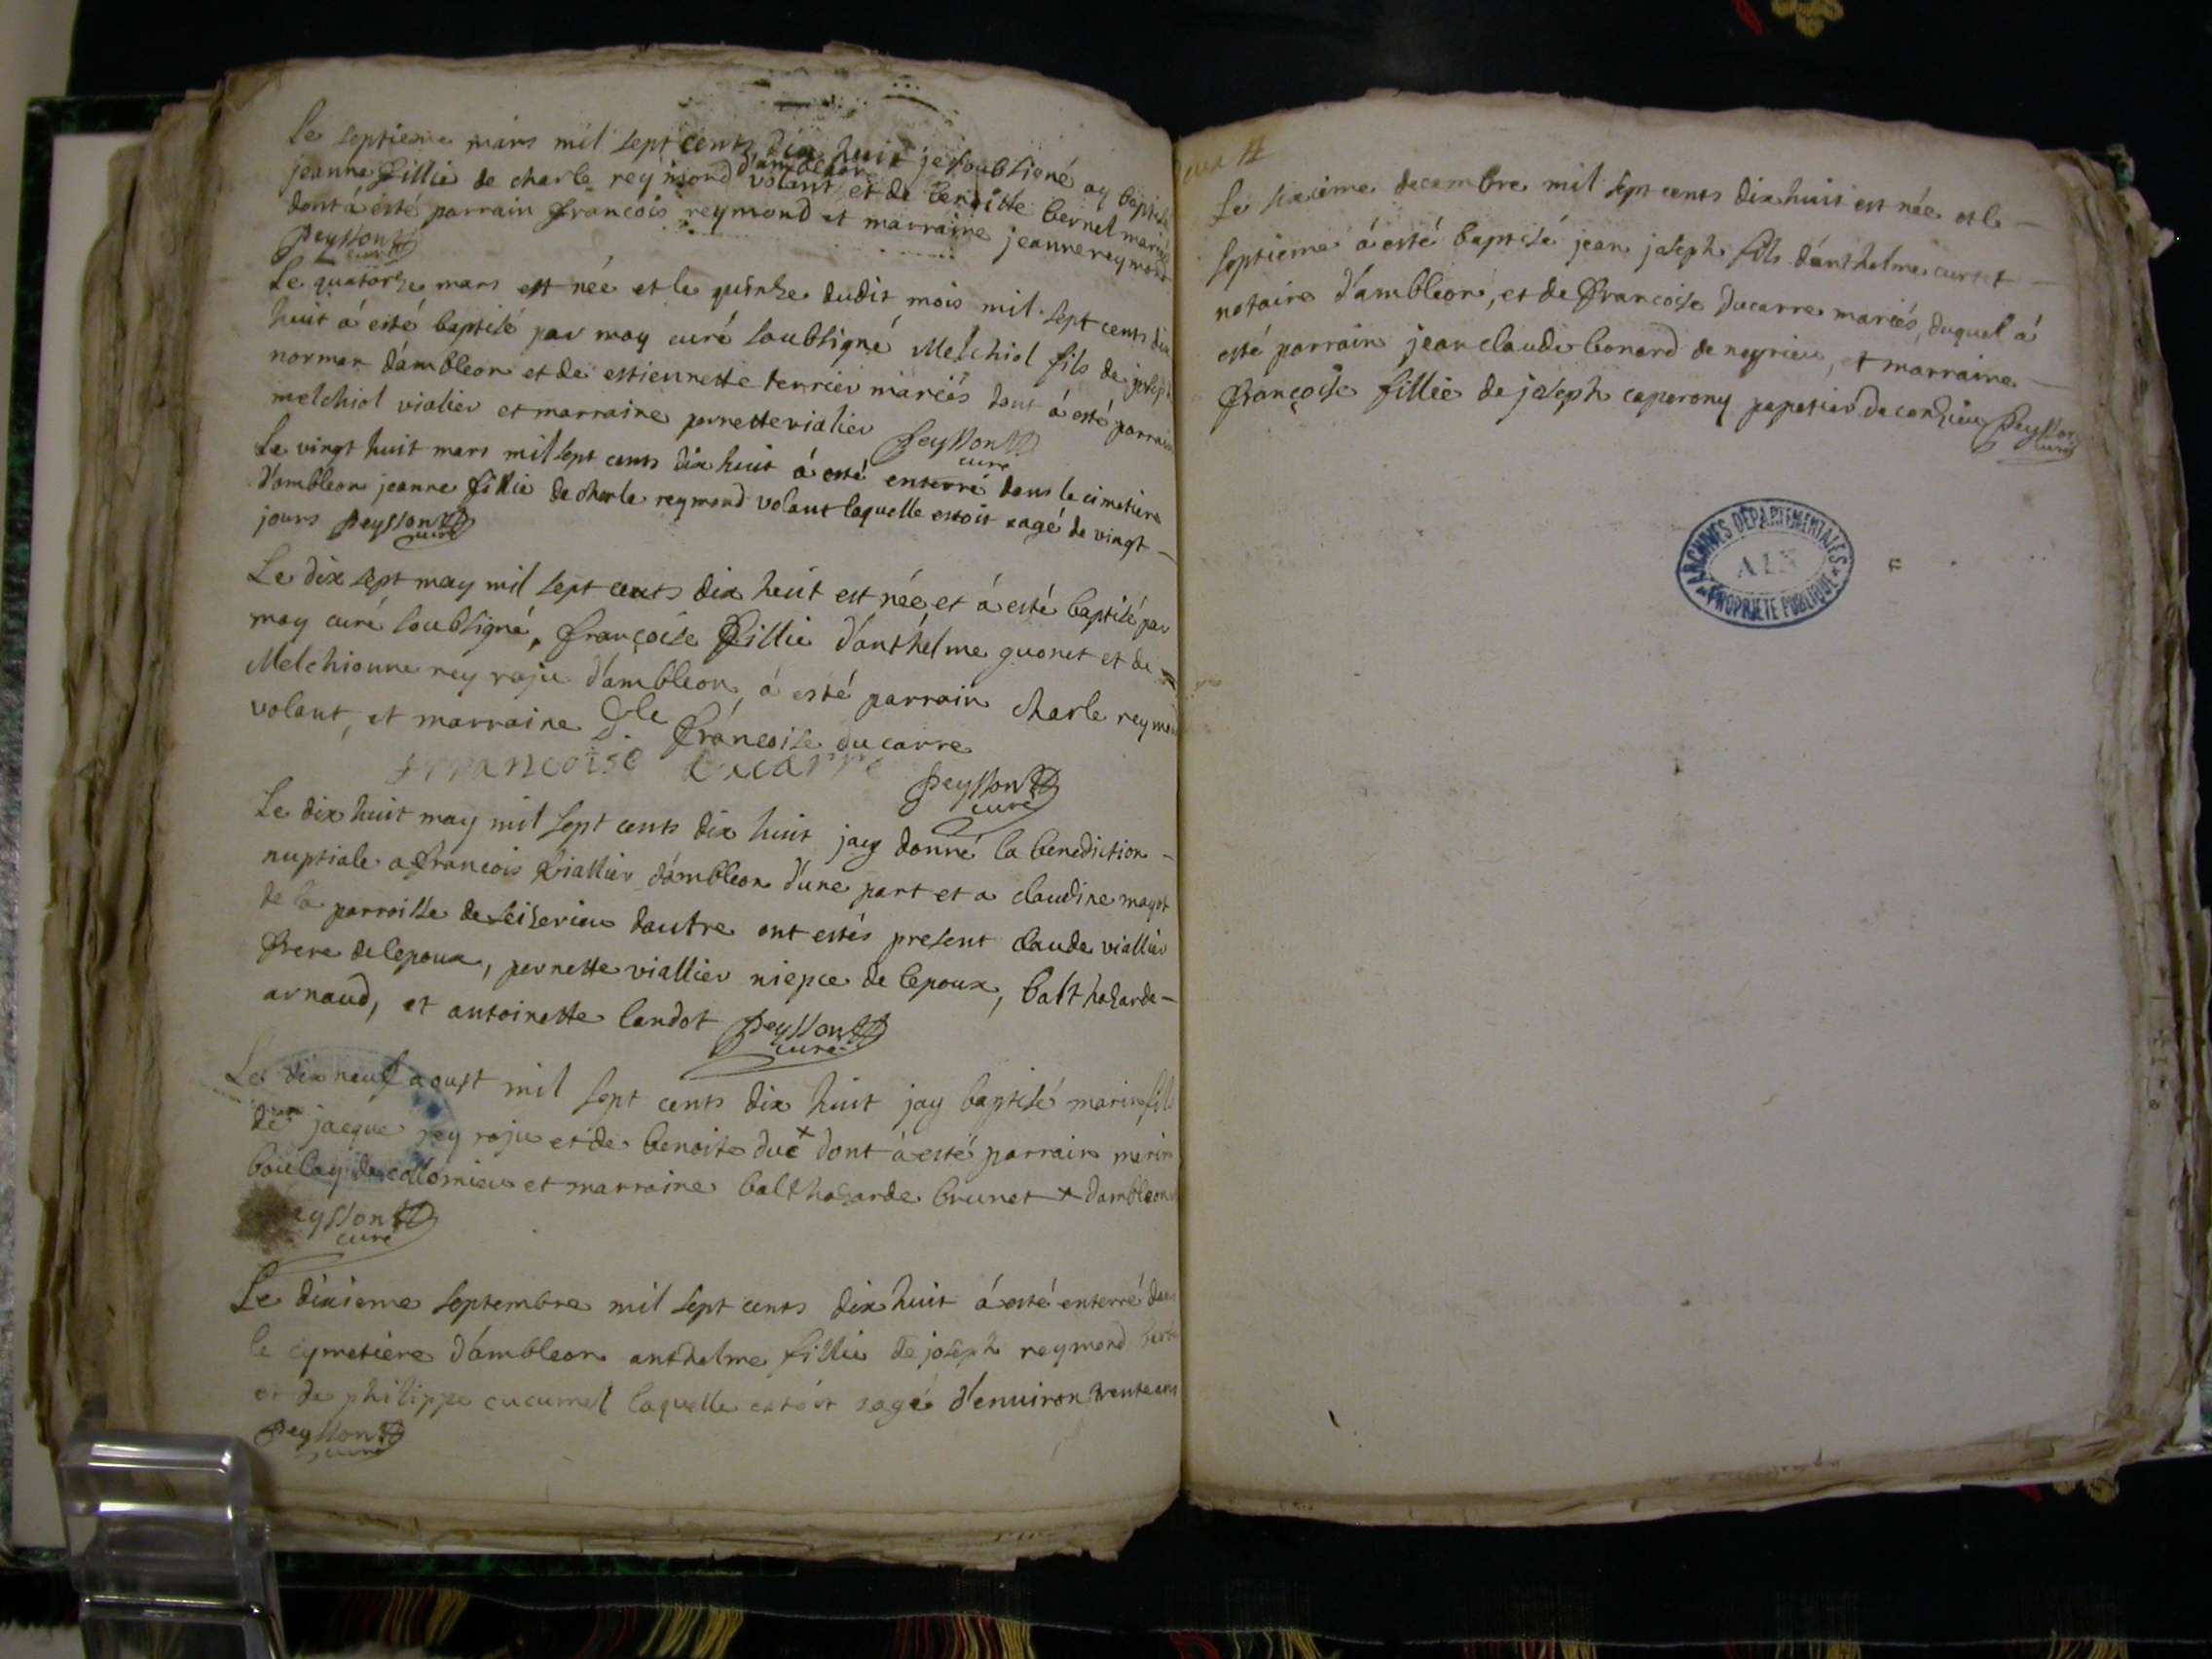 Le septieme mars mil sept cents dix huit je soubsigné ay baptisé
d'ambleon
jeanne fillie de charle reymond volant et de benoitte bernel mariés
dont á esté parrain francois reymond et marraine jeanne reymond
Peysson curé
Le quatorze mars est née et le quinze dudit mois mil sept cents dix
huit á esté baptisé par moy curé soubsigné Melchiol fils de joseph
norman d'ambleon et de estiennette terrier mariés dont á esté parrain
melchiol vialier et marraine pernette vialier Peysson
curé
Le vingt huit mars mil sept cents dix huit á esté enterré dans le cimetiere
d'ambleon jeanne fillie de charle reymond volant laquelle estoit aagé de vingt
jours Peysson
curé
Le dix sept may mil sept cents dix huit est née et á esté baptisé par
moy curé soubsigné, françoise fillie d'anthelme guonet et de
Melchionne rey roju d'ambleon, á esté parrain charle reymond
volant, et marraine Dle françoise ducarre
francoise ducarre
Peysson
curé
Le dix huit may mil sept cents dix huit jay donné la benediction
nuptiale a francois Viallier d'ambleon d'une part et a claudine magot
de la parroisse de seiserieu dautre ont estés present claude viallier
frere de lepoux, pernette viallier niepce de lepoux, balthazarde
arnaud, et antoinette landot Peysson
curé
Le dix neuf aoust mil sept cents dix huit jay baptisé marin fils
de jacque rey roju et de benoite duc + dont á esté parrain marin
boulay de collomieu et marraine balthazarde brunet + dambleon
Peysson
curé
Le dixieme septembre mil sept cents dix huit á esté enterré dans
le cymetiere d'ambleon anthelme fillie de joseph reymond
et de philippe cucumel laquelle estoit aagé d'enuiron trente ans
Peysson
curé
Le sixieme decembre mil sept cents dix huit est née et le
septieme á esté baptisé jean joseph fils d'anthelme curtet
notaire d'ambleon, et de francoise ducarre mariés, duquel á
esté parrain jean claude bonard de neyrieu, et marraine
françoise fillie de joseph caperony papetier de conzieu Peysson
curé
ARCHIVES DÉPARTEMENTALES
AIN
PROPRIÉTÉ PUBLIQUE